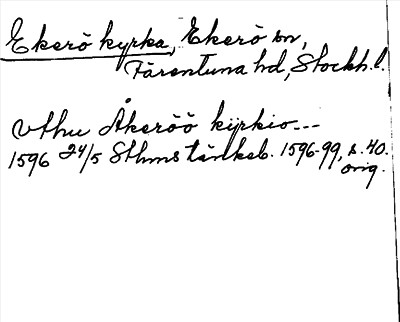 Ekerö kyrka, Ekerö sn,
Färentuna hd, Stockh. l.
vthu Åkeröö kijrkio---
1596 24/5 Sthms tänkeb. 1596-99, s. 40.
orig.